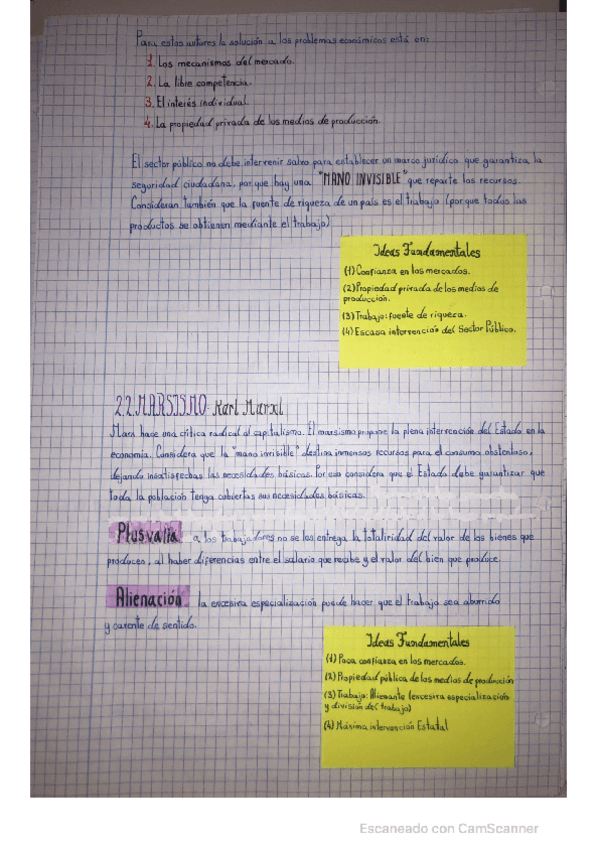 Para estos autores la solución a los problemas económicos está en:
1. Los mecanismos del mercado.
2. La libre competencia.
3. El interés individual.
4. La propiedad privada de los medios de producción.
El sector público no debe intervenir salvo para establecer un marco jurídico que garantiza la
seguridad ciudadana, porque hay una "MANO INVISIBLE" que reparte los recursos.
Consideran también que la fuente de riqueza de un país es el trabajo (porque todos los
productos se obtienen mediante el trabajo)
Ideas Fundamentales
(1) Confianza en los mercados.
(2) Propiedad privada de los medios de
producción.
(3) Trabajo: fuente de riqueza.
(4) Escasa intervención del Sector Público.
2.2. MARSISMO: Karl Marxl
Marx hace una crítica radical al capitalismo. El marsismo propone la plena intervención del Estado en la
economía. Considera que la "mano invisible" destina inmensos recursos para el consumo obstentoso,
dejando insatisfechas las necesidades básicas. Por eso considera que el Estado debe garantizar que
toda la población tenga cubiertas sus necesidades básicas.
Plusvalía a los trabajadores no se les entrega la totalidad del valor de los bienes que
producen, al haber diferencias entre el salario que recibe y el valor del bien que produce.
Alienación la excesiva especialización puede hacer que el trabajo sea aburrido
y carente de sentido.
Ideas Fundamentales
(1) Poca confianza en los mercados.
(2) Propiedad pública de los medios de producción
(3) Trabajo: Alienante (excesiva especialización
y división del trabajo)
(4) Máxima intervención Estatal
Escaneado con CamScanner